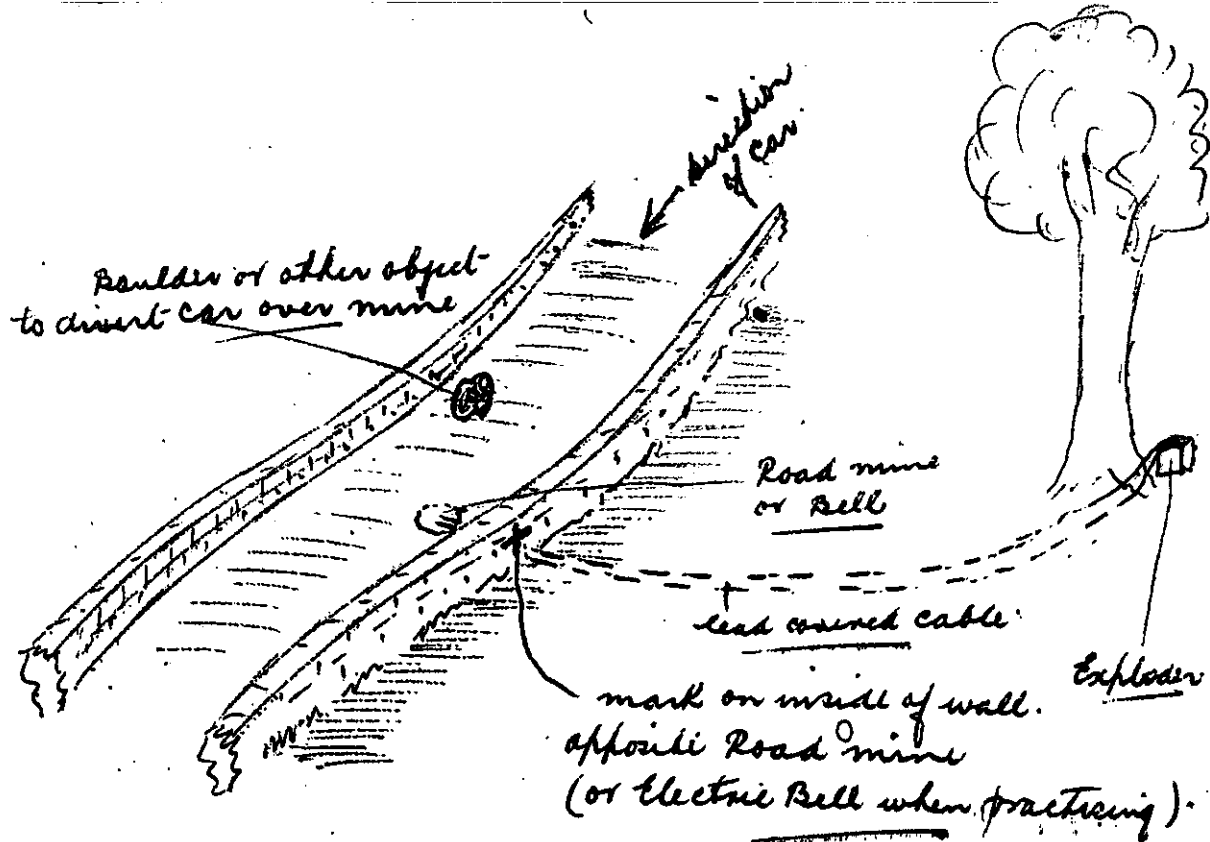 direction
of car.
Boulder or other object
to divert car over mine
Road mine
or Bell
lead covered cable
Exploder
mark on inside of wall.
opposite Road mine
(or Electric Bell when practising).